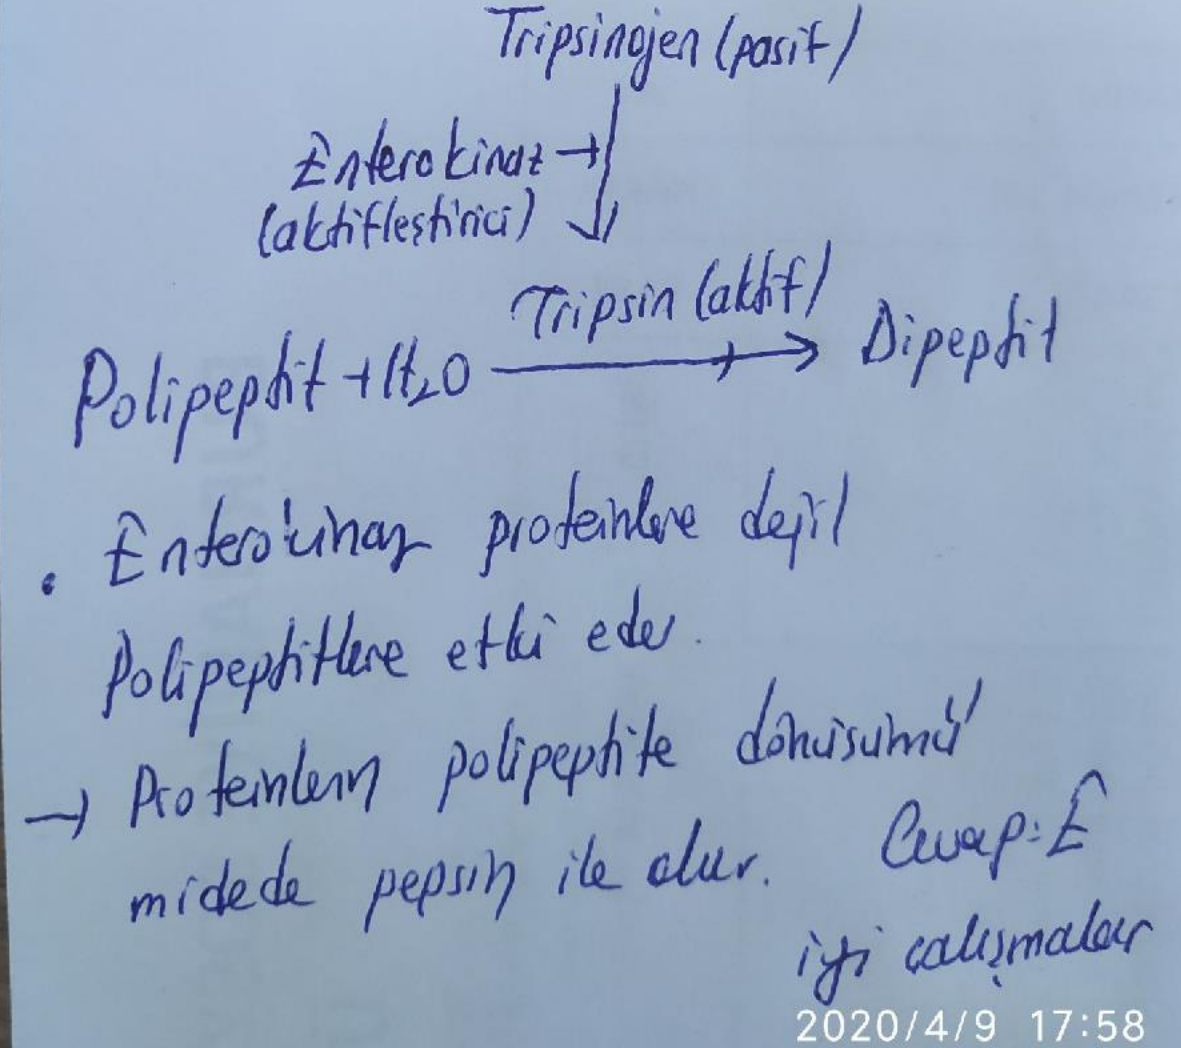 Tripsinojen (pasif)
Enterokinaz →
(aktifleştirici)
Tripsin (aktif)
Polipeptit + H₂O → Dipeptit
• Enterokinaz proteinlere değil
Polipeptitlere etki eder.
→ Proteinlerin polipeptite dönüşümü
midede pepsin ile olur.
Cevap: E
iyi çalışmalar
2020/4/9 17:58